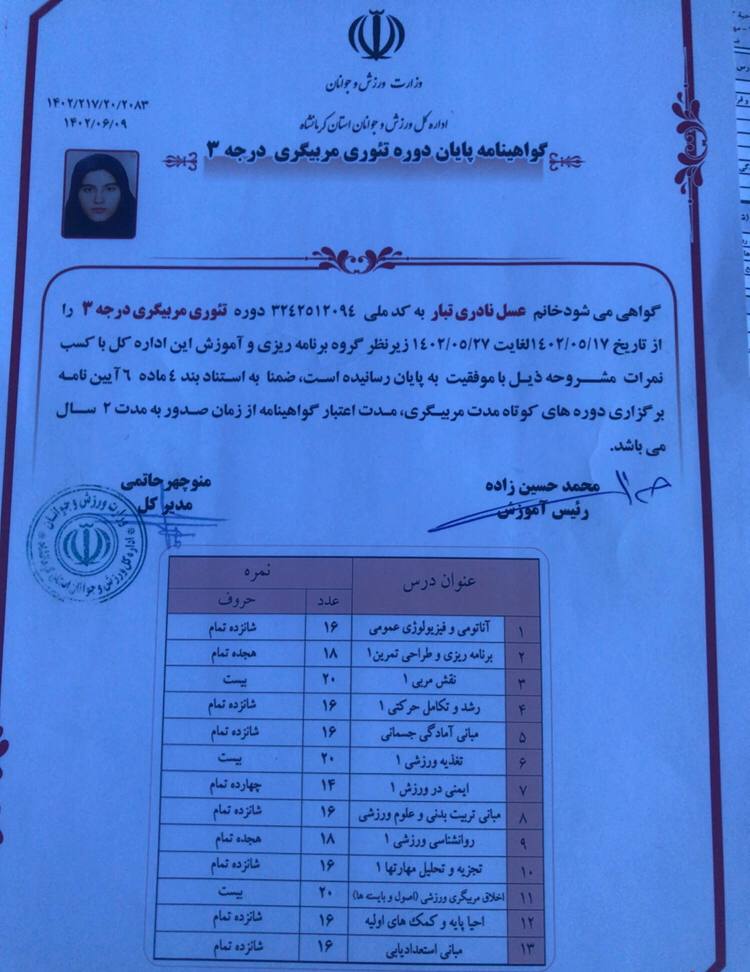 وزارت ورزش و جوانان
۱۴۰۲/۲۱۷/۲۰/۲۰۸۳
اداره کل ورزش و جوانان استان کرمانشاه
۱۴۰۲/۰۶/۰۹
گواهینامه پایان دوره تئوری مربیگری درجه ۳
گواهی می شود خانم عسل نادری تبار به کد ملی ۳۲۴۲۵۱۲۰۹۴ دوره تئوری مربیگری درجه ۳ را
از تاریخ ۱۴۰۲/۰۵/۱۷ لغایت ۱۴۰۲/۰۵/۲۷ زیرنظر گروه برنامه ریزی و آموزش این اداره کل با کسب
نمرات مشروحه ذیل با موفقیت به پایان رسانیده است، ضمنا به استناد بند ۴ ماده ۶ آیین نامه
برگزاری دوره های کوتاه مدت مربیگری، مدت اعتبار گواهینامه از زمان صدور به مدت ۲ سال
می باشد.
محمد حسین زاده
رئیس آموزش
منوچهر حاتمی
مدیر کل
وزارت ورزش و جوانان
اداره کل ورزش و جوانان استان کرمانشاه
عنوان درس نمره
عدد حروف
۱ آناتومی و فیزیولوژی عمومی ۱۶ شانزده تمام
۲ برنامه ریزی و طراحی تمرین ۱ ۱۸ هجده تمام
۳ نقش مربی ۱ ۲۰ بیست
۴ رشد و تکامل حرکتی ۱ ۱۶ شانزده تمام
۵ مبانی آمادگی جسمانی ۱۶ شانزده تمام
۶ تغذیه ورزشی ۱ ۲۰ بیست
۷ ایمنی در ورزش ۱ ۱۴ چهارده تمام
۸ مبانی تربیت بدنی و علوم ورزشی ۱۶ شانزده تمام
۹ روانشناسی ورزشی ۱ ۱۸ هجده تمام
۱۰ تجزیه و تحلیل مهارتها ۱ ۱۶ شانزده تمام
۱۱ اخلاق مربیگری ورزشی (اصول و بایسته ها) ۲۰ بیست
۱۲ احیا پایه و کمک های اولیه ۱۶ شانزده تمام
۱۳ مبانی استعدادیابی ۱۶ شانزده تمام